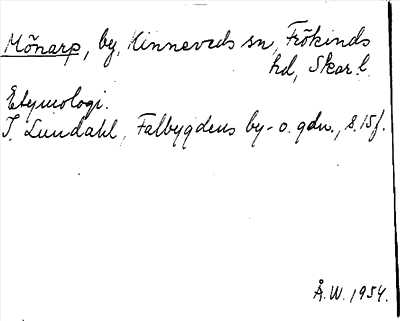 Mönarp, by, Kinneveds sn, Frökinds
hd, Skar. l.
Etymologi.
I. Lundahl, Falbygdens by- o. gdn., s. 15f.
Å.W. 1954.